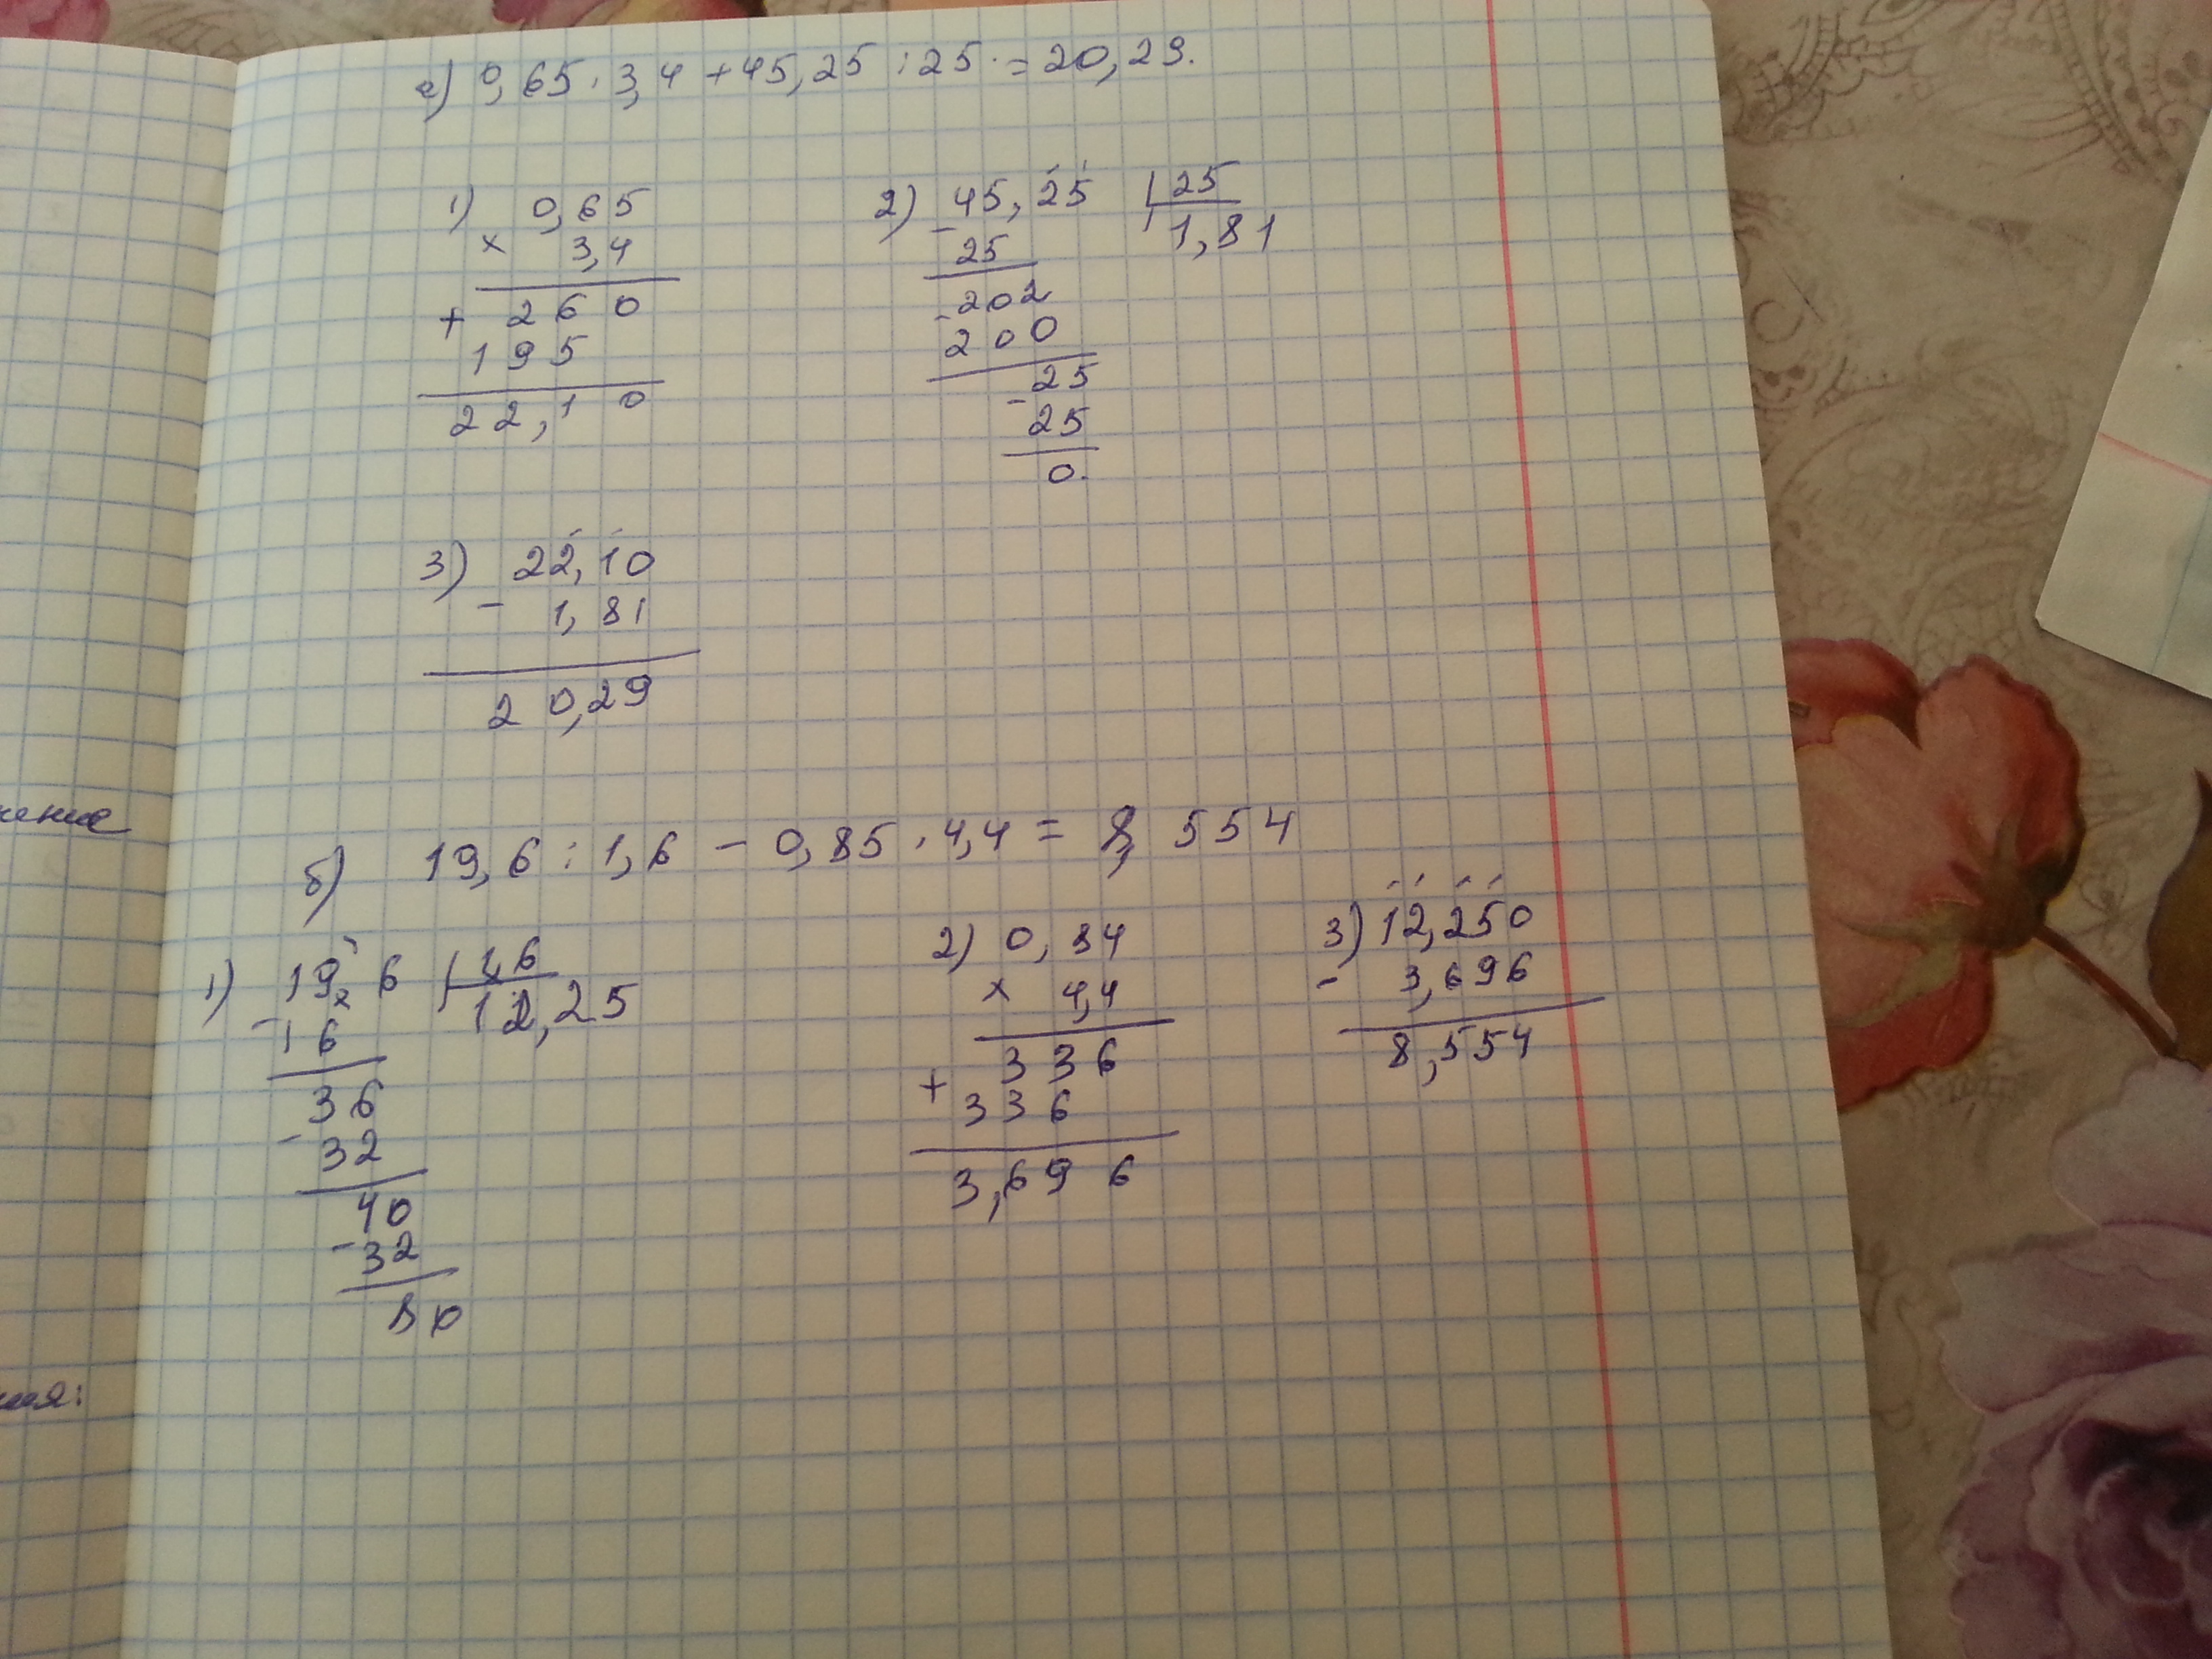 а) 0,65 · 3,4 + 45,25 : 25 = 20,29.
1) 0,65
× 3,4
+ 260
195
22,10
2) - 45,25 | 25
25 1,81
- 202
200
- 25
25
0.
3) 22,10
- 1,81
20,29
б) 19,6 : 1,6 - 0,85 · 4,4 = 8,554
1) 19,6 | 1,6
- 16 12,25
36
- 32
40
- 32
80
2) 0,84
× 4,4
336
+ 336
3,696
3) 12,250
- 3,696
8,554